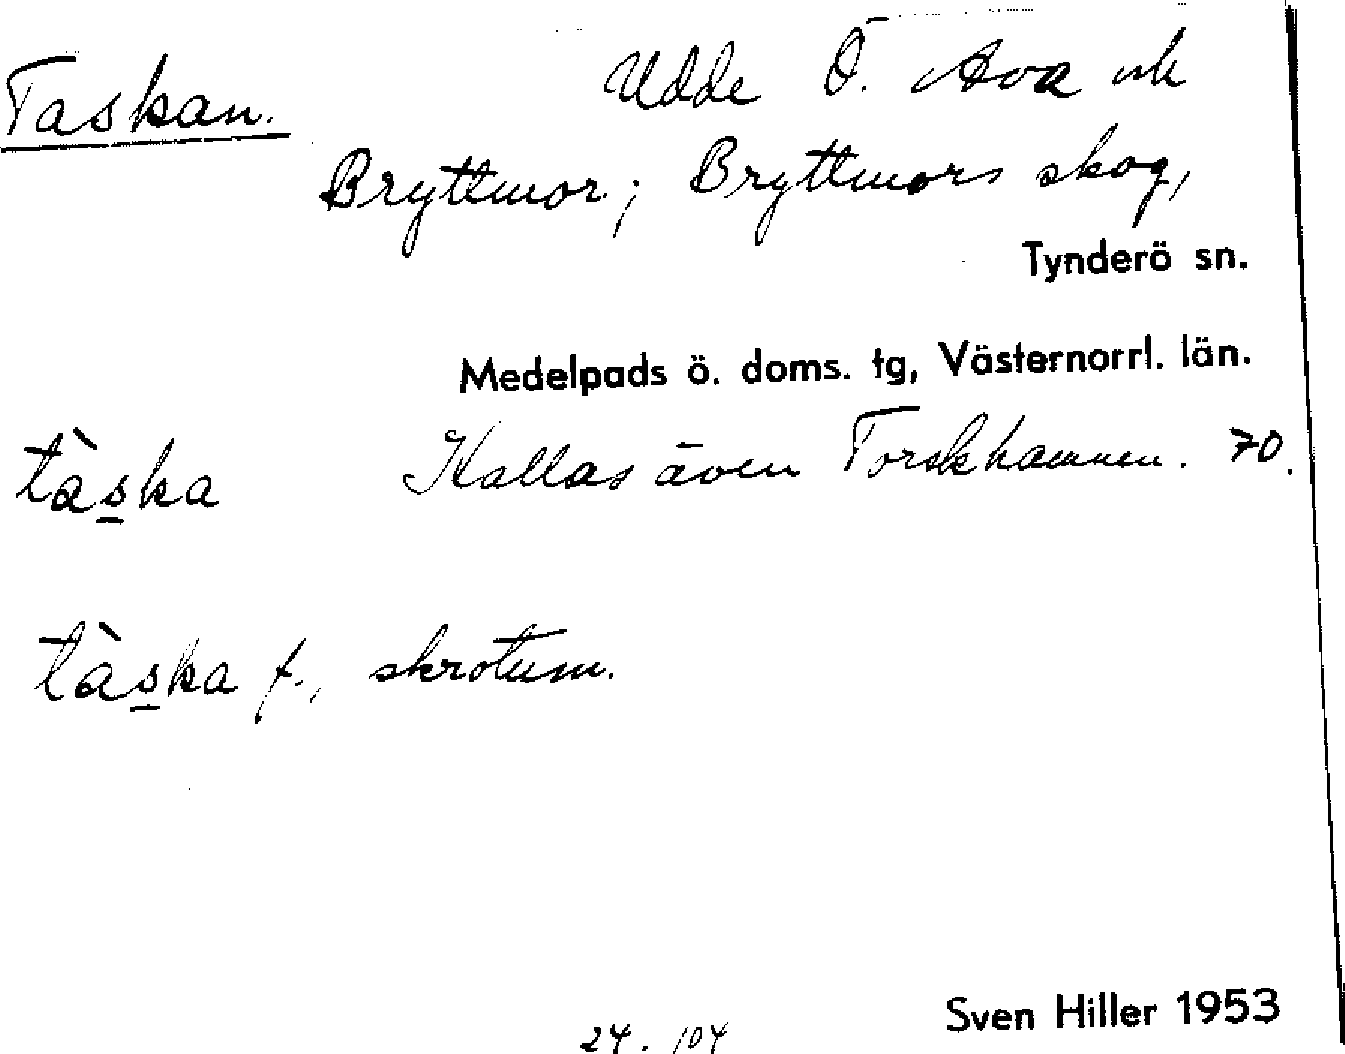 Taskan. Udde Ö. Ava och
Bryttmor; Bryttmors skog,
Tynderö sn.
Medelpads ö. doms. tg, Västernorrl. län.
tàska Kallas även Torskhamnen. 70.
tàska f., skrotum.
Sven Hiller 1953
24. 104